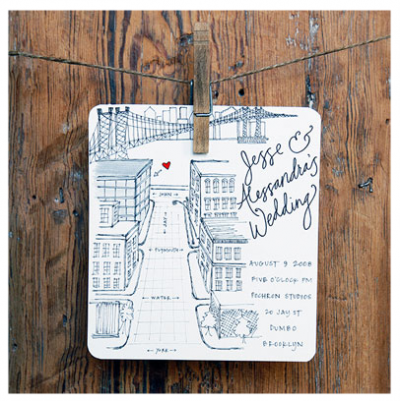 Jesse &
Alessandra's
Wedding
AUGUST 9 2008
FIVE O'CLOCK PM
POCHRON STUDIOS
20 JAY ST
DUMBO
BROOKLYN
JOHN
JAY
PLYMOUTH
WATER